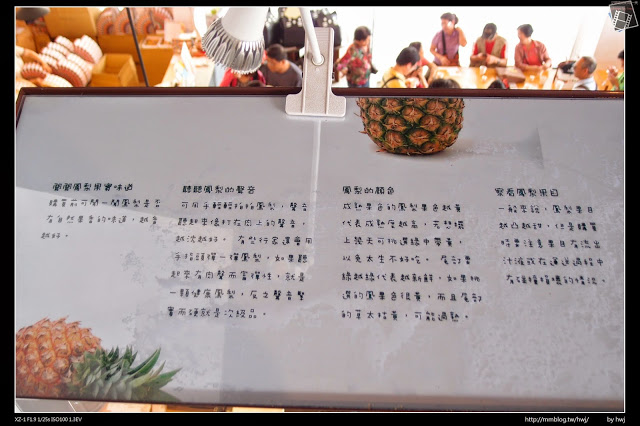 鄉鄉鳳梨果實味道
購買前可聞一聞鳳梨是否
有自然果香的味道，越香
越好。
聽聽鳳梨的聲音
可用手輕輕拍拍鳳梨，聲音
聽起來像打在肉上的聲音，
越沈越好。有些行家還會用
手指頭彈一彈鳳梨，如果聽
起來有肉聲而富彈性，就是
一顆健康鳳梨，反之聲音堅
實而硬就是次級品。
鳳梨的顏色
成熟果色的鳳梨果色越黃
代表成熟度越高，若想擺
上幾天可挑選綠中帶黃，
以免太生不好吃。尾部葉
綠越綠代表越新鮮，如果挑
選的鳳果色很黃，而且尾部
的葉太枯黃，可能過熟。
察看鳳梨果目
一般來說，鳳梨果目
越凸越甜，但是購買
時要注意果目有流出
汁液或在運送過程中
有碰撞損壞的情況。
XZ-1 F1.9 1/25s ISO100 1.3EV
http://mmblog.tw/hwj/
by hwj